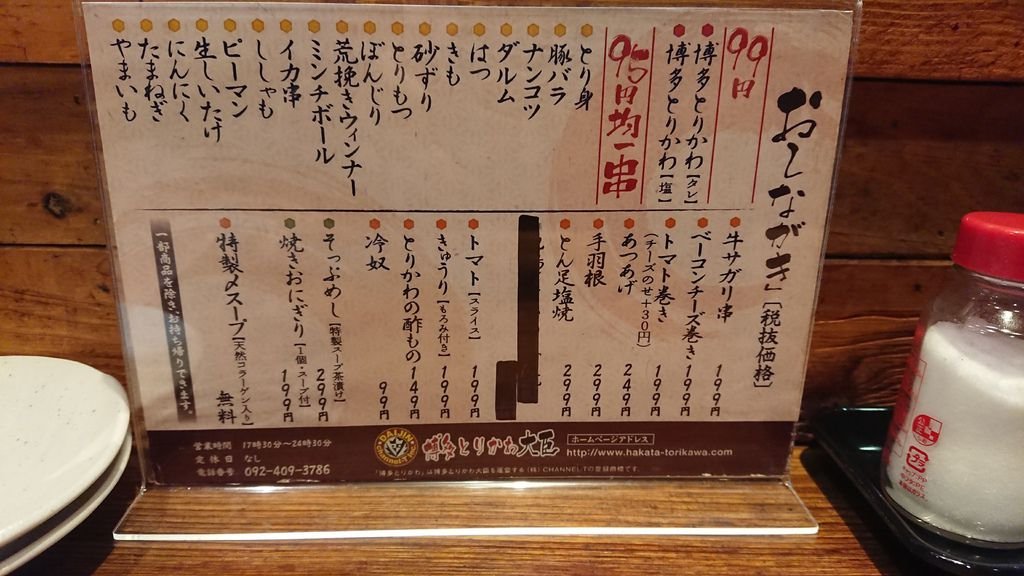 おしながき [税抜価格]
99円
博多とりかわ [タレ]
博多とりかわ [塩]
95円均一串
とり身
豚バラ
ナンコツ
ダルム
はつ
きも
砂ずり
とりもつ
ぼんじり
荒挽きウィンナー
ミンチボール
イカ串
ししゃも
ピーマン
生しいたけ
にんにく
たまねぎ
やまいも
牛サガリ串 199円
ベーコンチーズ巻き 199円
トマト巻き 199円
(チーズのせ+30円)
あつあげ 249円
手羽根 299円
とん足塩焼 299円
トマト [スライス] 199円
きゅうり [もろみ付き] 199円
とりかわの酢もの 149円
冷奴 99円
そっぷめし [特製スープ茶漬け] 299円
焼きおにぎり [1個・スープ付] 199円
特製〆スープ [天然コラーゲン入り] 無料
一部商品を除き、お持ち帰りできます。
営業時間 17時30分〜24時30分
定休日 なし
電話番号 092-409-3786
DAIJIN
博多とりかわ大臣
ホームページアドレス
http://www.hakata-torikawa.com
「博多とりかわ」は博多とりかわ大臣を運営する(株)CHANNEL7の登録商標です。